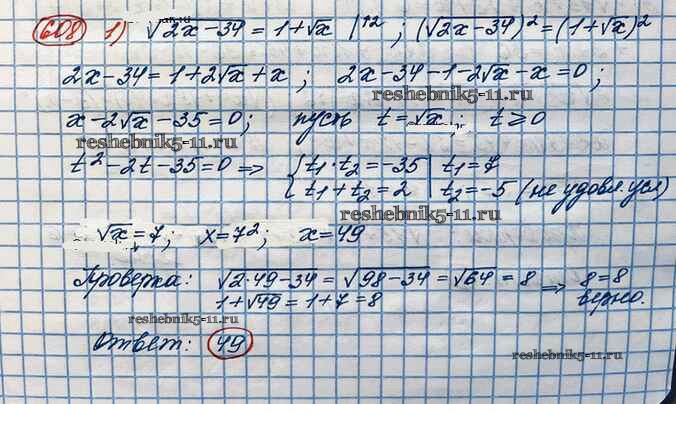 608 1) √2x-34 = 1+√x |↑2 ; (√2x-34)² = (1+√x)²
2x-34 = 1+2√x+x ; 2x-34-1-2√x-x=0 ;
reshebnik5-11.ru
x-2√x-35=0 ; пусть t=√x ; t≥0
reshebnik5-11.ru
t²-2t-35=0 => { t₁·t₂=-35 | t₁=7
t₁+t₂=2 | t₂=-5 (не удовл. усл)
reshebnik5-11.ru
√x=7 ; x=7² ; x=49
Проверка: √2·49-34 = √98-34 = √64 = 8 => 8=8
1+√49 = 1+7 = 8 верно.
reshebnik5-11.ru
Ответ: 49
reshebnik5-11.ru